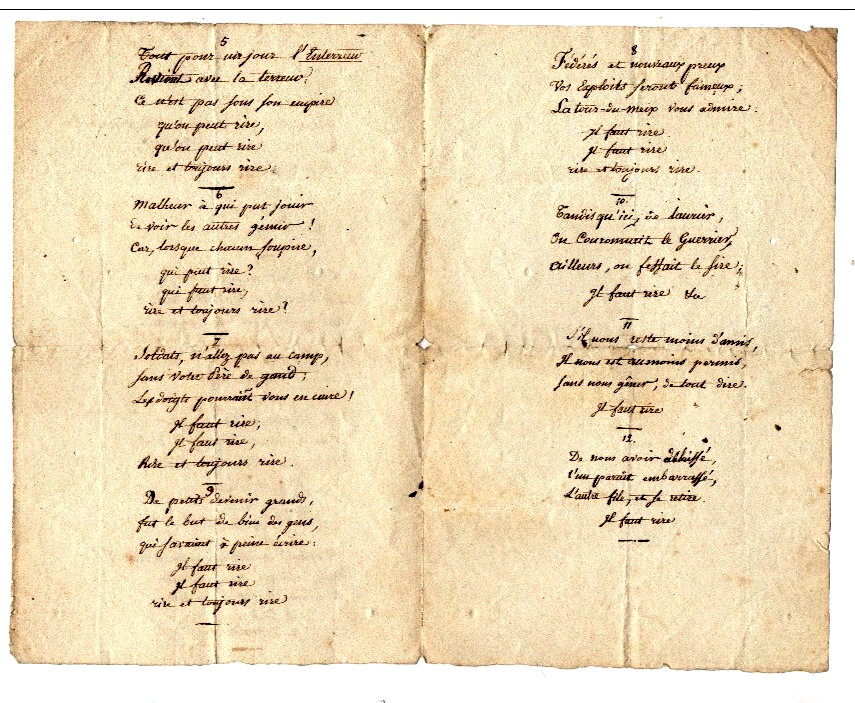 5
Tout pour un jour l'
Revient avec la terreur;
Ce n'est pas sous son empire
qu'on peut rire,
qu'on peut rire
rire et toujours rire.
6
Malheur à qui put jouir
de voir les autres gémir !
Car, lorsque chacun soupire,
qui peut rire ?
qui peut rire,
rire et toujours rire ?
7
Soldats, n'allez pas au camp,
sans votre Père de gand;
Les doigts pourraint vous en cuire !
Il faut rire;
Il faut rire,
Rire et toujours rire.
9
De petits devenir grands,
fut le but de bien des gens,
qui savaient à peine écrire:
Il faut rire
Il faut rire
rire et toujours rire
8
Fédérés et nouveaux preux
Vos Exploits seront fameux;
La tour-du-meix vous admire:
Il faut rire.
Il faut rire
rire et toujours rire.
10.
Tandis qu'ici, de laurier,
On Couronnait le Guerrier,
ailleurs, on fessait le sire;
Il faut rire &a
11
S'il nous reste moins d'amis,
Il nous est au moins permis,
sans nous gêner, de tout dire.
Il faut rire
12.
De nous avoir abbaissé,
l'un paraît embarrassé,
L'autre file, et se retire.
Il faut rire